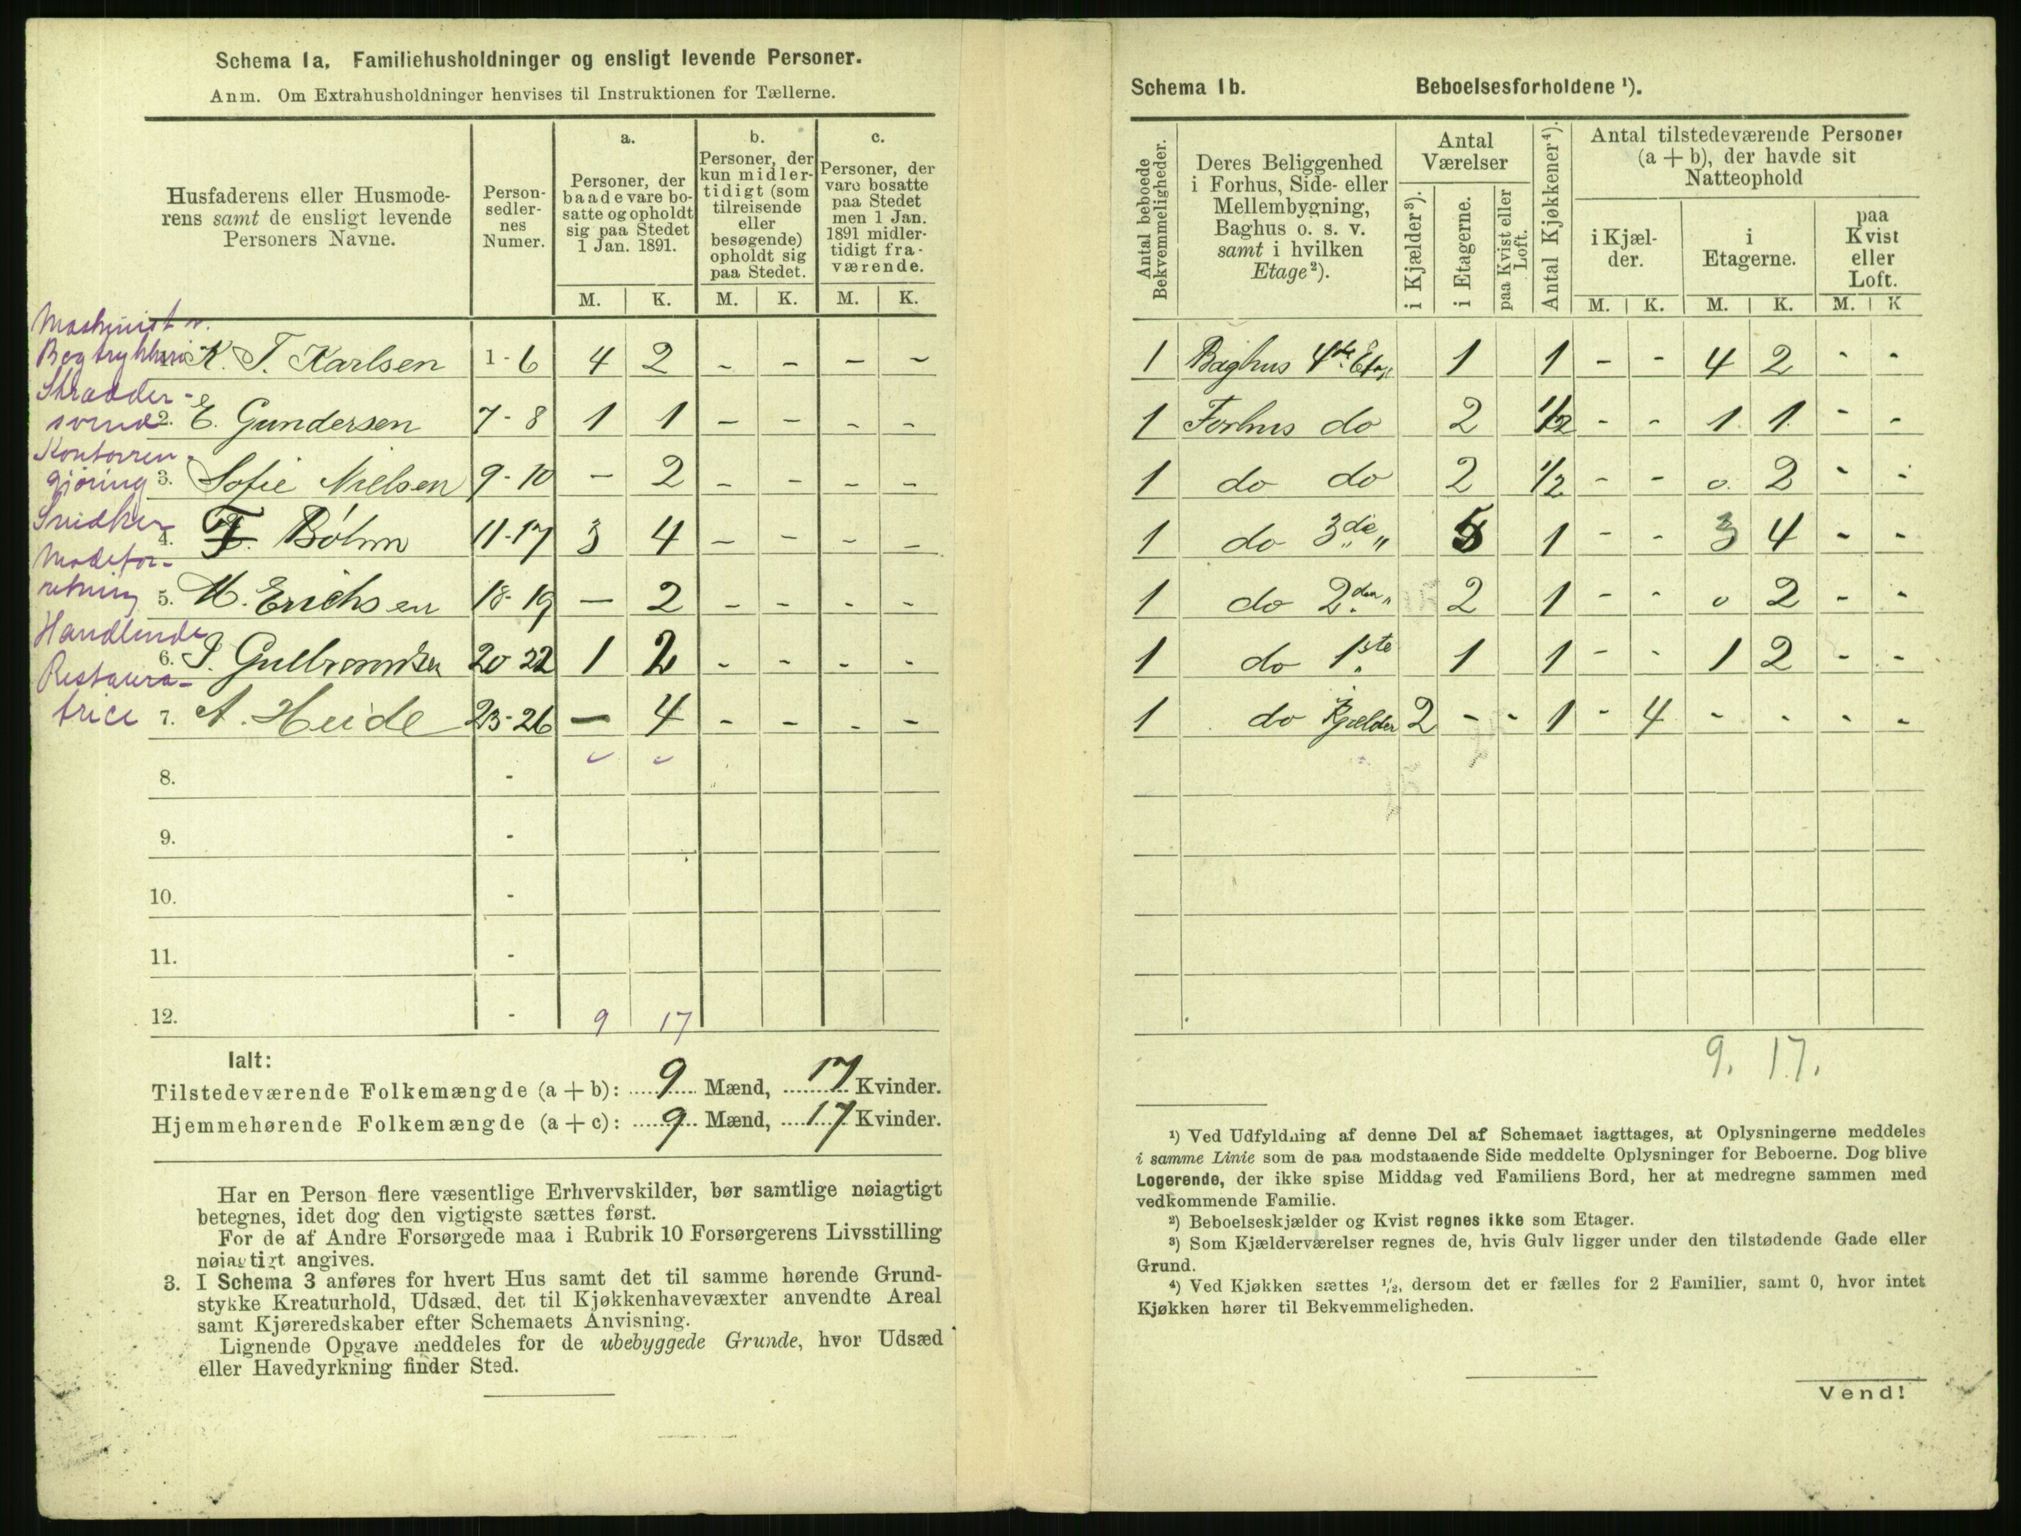 Schema 1a. Familiehusholdninger og ensligt levende Personer.
Anm. Om Extrahusholdninger henvises til Instruktionen for Tællerne.
Husfaderens eller Husmoderens samt de ensligt levende Personers Navne.
Personsedlernes Numer.
a.
Personer, der baade vare bosatte og opholdt sig paa Stedet 1 Jan. 1891.
b.
Personer, der kun midlertidigt (som tilreisende eller besøgende) opholdt sig paa Stedet.
c.
Personer, der vare bosatte paa Stedet men 1 Jan. 1891 midlertidigt fraværende.
M. K. M. K. M. K.
Maskinist v.
Bogtrykkeri 1. K. T. Karlsen 1-6 4 2 - - - -
Skrædder-
svend 2. E. Gundersen 7-8 1 1 - - - -
Kontorren-
gjøring 3. Sofie Nielsen 9-10 - 2 - - - -
Snidker 4. F. Böhm 11-17 3 4 - - - -
Modefor-
retning 5. M. Erichsen 18-19 - 2 - - - -
Handlende 6. Gulbrandsen 20-22 1 2 - - - -
Restaura-
trice 7. A. Heide 23-26 - 4 - - - -
8. -
9. -
10. -
11. -
12. - 9 17
Ialt:
Tilstedeværende Folkemængde (a + b): 9 Mænd, 17 Kvinder.
Hjemmehørende Folkemængde (a + c): 9 Mænd, 17 Kvinder.
Har en Person flere væsentlige Erhvervskilder, bør samtlige nøiagtigt
betegnes, idet dog den vigtigste sættes først.
For de af Andre Forsørgede maa i Rubrik 10 Forsørgerens Livsstilling
nøiagtigt angives.
3. I Schema 3 anføres for hvert Hus samt det til samme hørende Grund-
stykke Kreaturhold, Udsæd, det til Kjøkkenhavevæxter anvendte Areal
samt Kjøreredskaber efter Schemaets Anvisning.
Lignende Opgave meddeles for de ubebyggede Grunde, hvor Udsæd
eller Havedyrkning finder Sted.
Schema 1b. Beboelsesforholdene ¹).
Antal beboede Bekvemmeligheder.
Deres Beliggenhed i Forhus, Side- eller Mellembygning, Baghus o. s. v. samt i hvilken Etage²).
Antal Værelser
i Kjælder³).
i Etagerne.
paa Kvist eller Loft.
Antal Kjøkkener⁴).
Antal tilstedeværende Personer (a + b), der havde sit Natteophold
i Kjælder.
i Etagerne.
paa Kvist eller Loft.
M. K. M. K. M. K
1 Baghus 4de Etag 1 1 - - 4 2 - -
1 Forhus do 2 1/2 - - 1 1 - -
1 do do 2 1/2 - - o. 2 - -
1 do 3die " 5 1 - - 3 4 - -
1 do 2den " 2 1 - - o 2 - -
1 do 1ste 1 1 - - 1 2 - -
1 do Kjælder 2 - - 1 - 4 - - - -
9. 17.
¹) Ved Udfyldning af denne Del af Schemaet iagttages, at Oplysningerne meddeles
i samme Linie som de paa modstaaende Side meddelte Oplysninger for Beboerne. Dog blive
Logerende, der ikke spise Middag ved Familiens Bord, her at medregne sammen med
vedkommende Familie.
²) Beboelseskjælder og Kvist regnes ikke som Etager.
³) Som Kjælderværelser regnes de, hvis Gulv ligger under den tilstødende Gade eller
Grund.
⁴) Ved Kjøkken sættes ½, dersom det er fælles for 2 Familier, samt 0, hvor intet
Kjøkken hører til Bekvemmeligheden.
Vend!